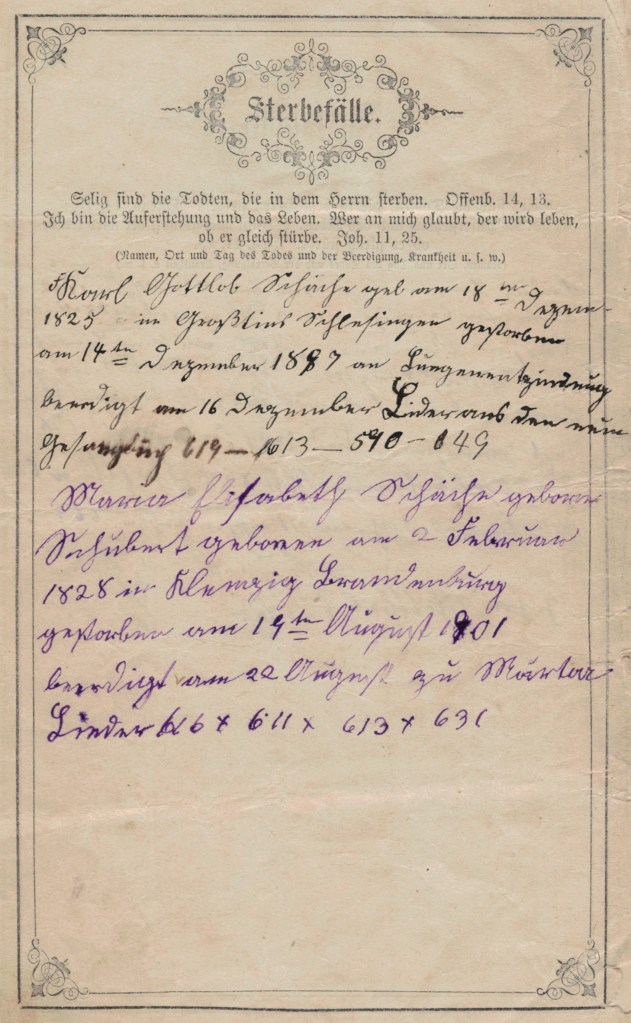 Sterbefälle.
Selig sind die Todten, die in dem Herrn sterben. Offenb. 14, 13.
Ich bin die Auferstehung und das Leben. Wer an mich glaubt, der wird leben,
ob er gleich stürbe. Joh. 11, 25.
(Namen, Ort und Tag des Todes und der Beerdigung, Krankheit u. s. w.)
Karl Gottlob Schäche geb am 18 ten Dezem-
1825 in Schlesingen gestorben
am 14ten Dezember 1897 an Lungenentzindung
beerdigt am 16 Dezember Lider aus den neun
Gesangbuch 619 — 613 — 590 — 649
Maria Elisabeth Schäche geborne
Schubert geboren am 2 Februar
1828 in Klemzig Brandenburg
gestorben am 19ten August 1901
beerdigt am 22 August zu
Lieder 626 x 611 x 613 x 631